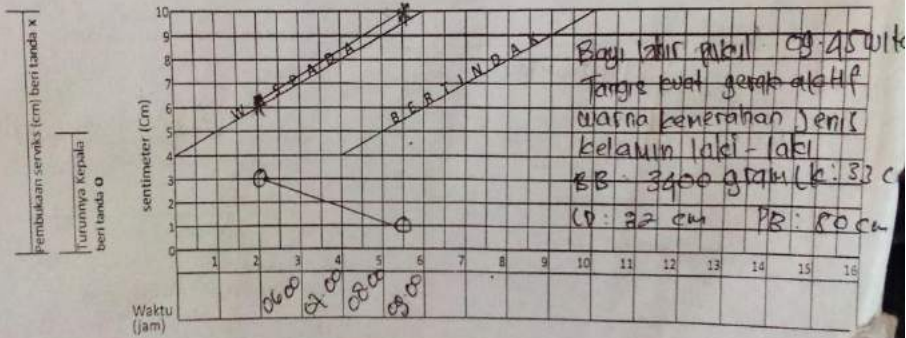 Pembukaan serviks (cm) beri tanda x
Turunnya Kepala
beri tanda O
sentimeter (Cm)
10
9
8
7
6
5
4
3
2
1
0
WASPADA
BERTINDAK
Bayi lahir pukul 09.45 wita
Tangis kuat gerak aktif
warna kemerahan Jenis
kelamin laki-laki
BB: 3400 gram LK: 33 c
LD: 32 cm PB: 50 cm
1 2 3 4 5 6 7 8 9 10 11 12 13 14 15 16
06.00 07.00 08.00 09.00
Waktu
(jam)